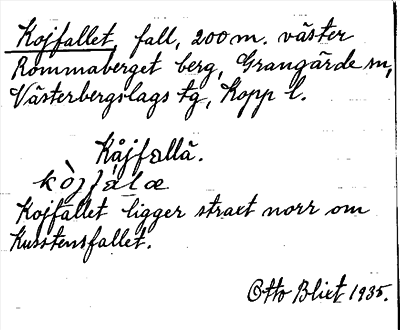 Kojfallet, fall, 200 m. väster
Rommaberget berg, Grangärde sn,
Västerbergslags tg, Kopp l.
Kåjfallä.
Kojfallet ligger straxt norr om
Kusstensfallet.
Otto Blixt 1935.